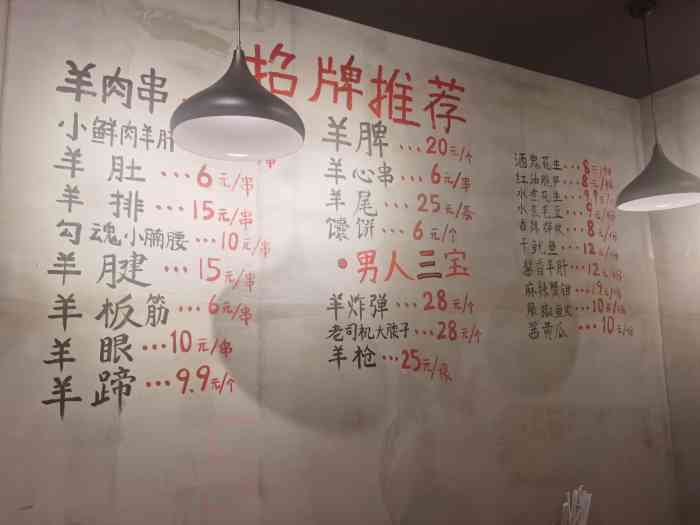 招牌推荐
羊肉串
小鲜肉羊肝 串
羊肚…6元/串
羊排…15元/串
勾魂小腩腰…10元/串
羊腱…15元/串
羊板筋…6元/串
羊眼…10元/串
羊蹄…9.9元/个
羊脾…20元/个
羊心串…6元/串
羊尾…25元/条
馕饼…6元/个
•男人三宝
羊炸弹…28元/个
老司机大腰子…28元/个
羊枪…25元/根
酒鬼花生…8元/份
红油…8元/份
水煮花生…9.9元/份
水煮毛豆…9元/份
8元/份
鱿鱼…12元/份
酱香羊肝…12元/份
麻辣蟹钳…19元/份
10元/份
酱黄瓜…10元/份